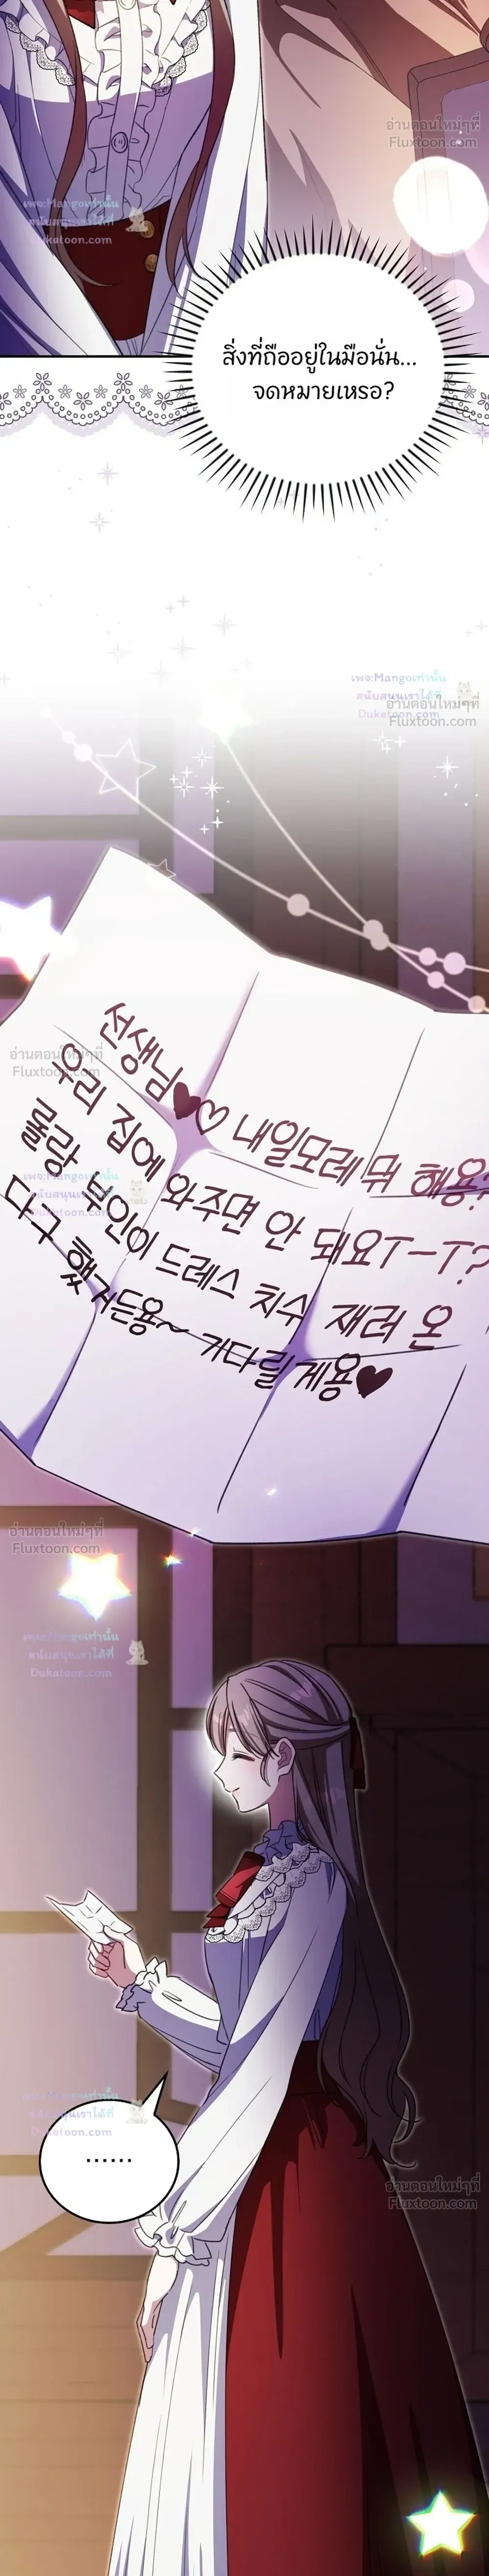 อ่านตอนใหม่ๆที่
Fluxtoon.com
เพจ:Mangoเท่านั้น
สนับสนุนเราได้ที่
Duketoon.com
สิ่งที่ถืออยู่ในมือนั่น...
จดหมายเหรอ?
เพจ:Mangoเท่านั้น
สนับสนุนเราได้ที่
Duketoon.com
อ่านตอนใหม่ๆที่
Fluxtoon.com
อ่านตอนใหม่ๆที่
Fluxtoon.com
선생님♥♡ 내일모레 뭐 해용?
우리 집에 와주면 안 돼요T-T?
룰랑 장인이 드레스 치수 재러 온
다구 했거든용~ 기다릴게용♥
เพจ:Mangoเท่านั้น
สนับสนุนเราได้ที่
Duketoon.com
อ่านตอนใหม่ๆที่
Fluxtoon.com
เพจ:Mangoเท่านั้น
สนับสนุนเราได้ที่
Duketoon.com
เพจ:Mangoเท่านั้น
สนับสนุนเราได้ที่
Duketoon.com
......
อ่านตอนใหม่ๆที่
Fluxtoon.com